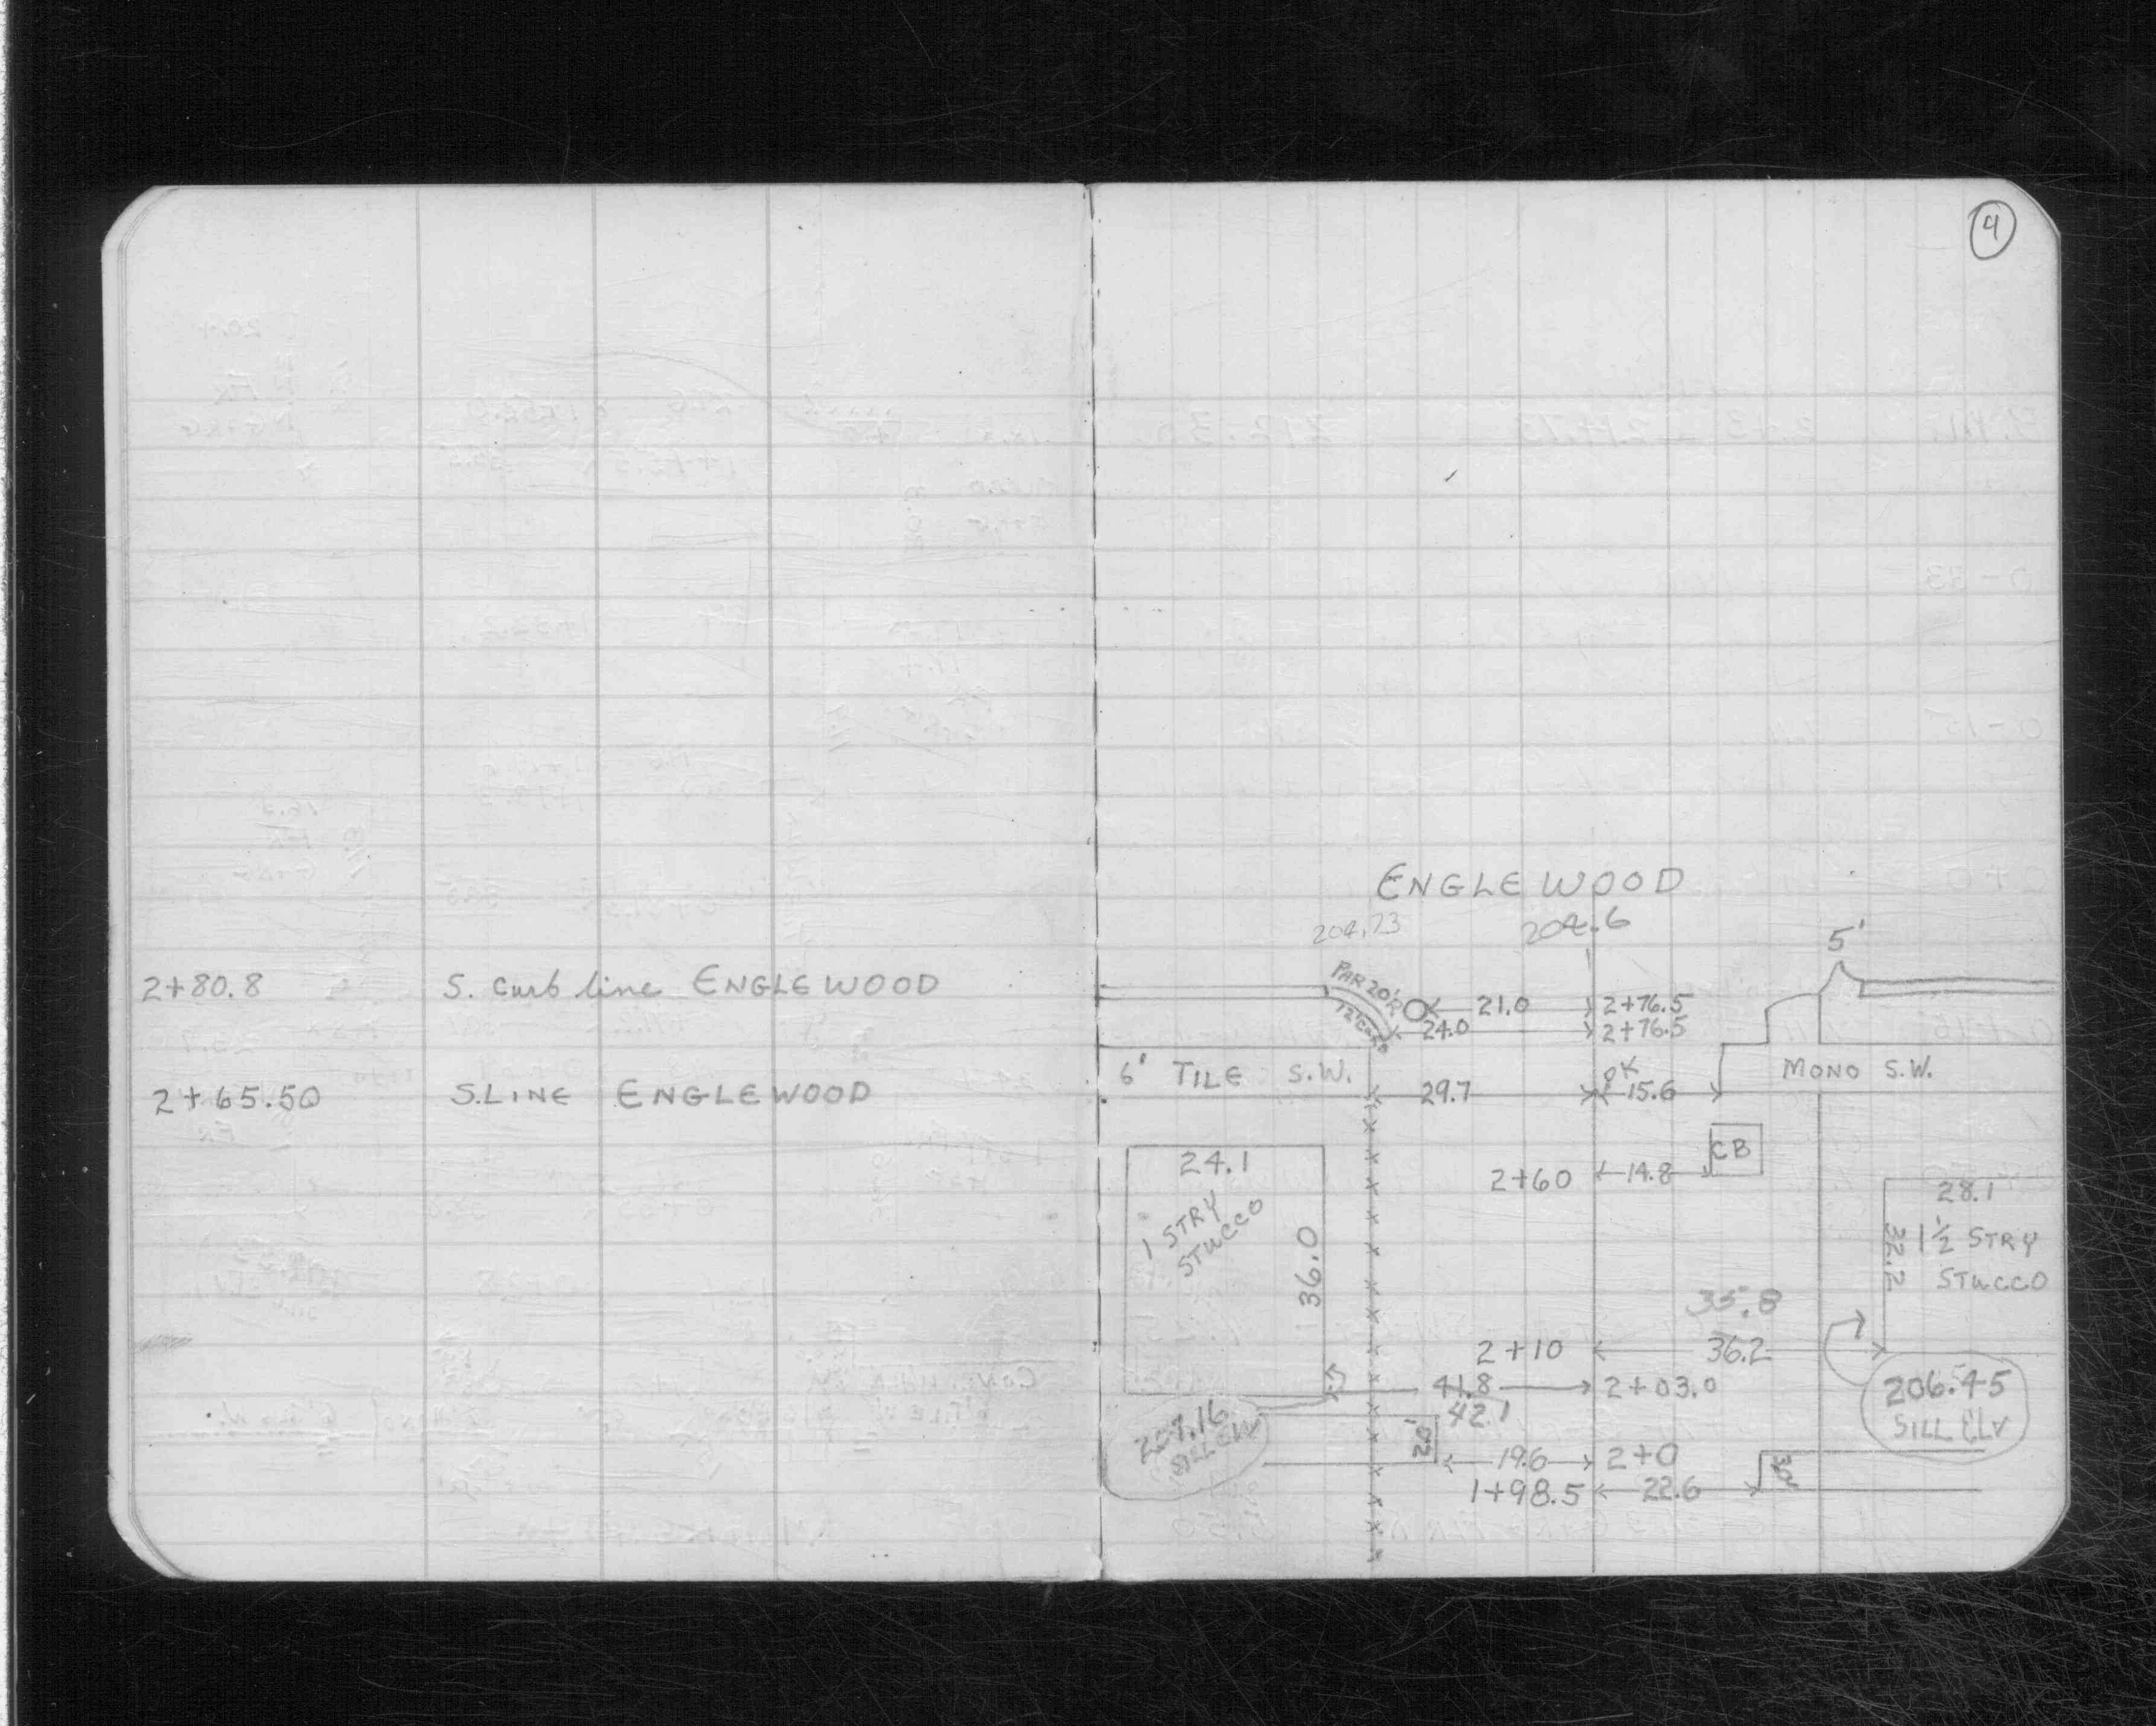 4
2+80.8 S. curb line ENGLEWOOD
2+65.50 S.LINE ENGLEWOOD
ENGLEWOOD
204.73 204.6
5'
PAR 20'R
21.0 2+76.5
24.0 2+76.5
6' TILE S.W.
29.7
OK
15.6
MONO S.W.
CB
2+60 14.8
24.1
1 STRY
STUCCO
36.0
28.1
32.2
1½ STRY
STUCCO
35.8
2+10 36.2
41.8 2+03.0
42.1
207.16
SILL ELV
206.45
SILL ELV
20'
19.6 2+0
1+98.5 22.6